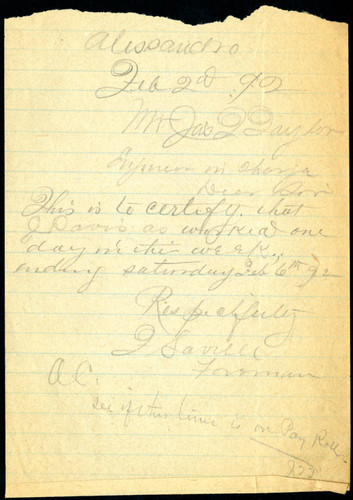 Alissandro
Feb 2d 92
Mr Jas T Taylor
in charge
Dear Sir
This is to certify that
J Davis as worked one
day in this week
ending saturday Feb 6th 92
Respectfully
Saville
Forman
A.C.
See if this time is on Pay Roll